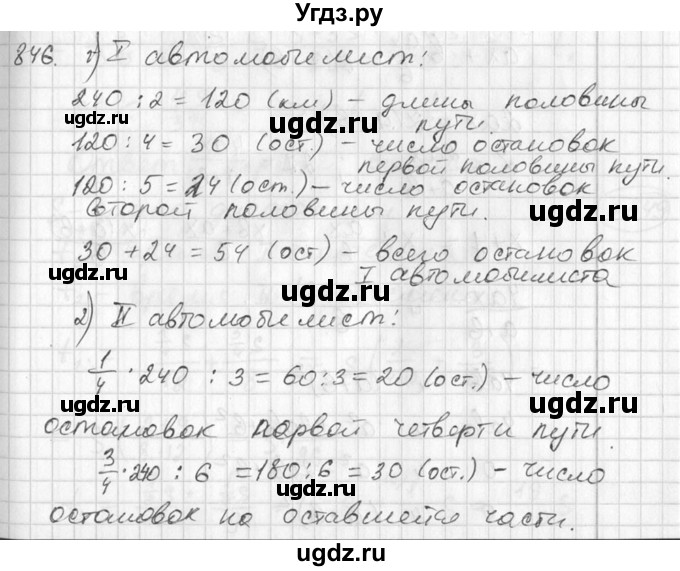 Угдз.ру
846. 1) I автомобилист:
240 : 2 = 120 (км) – длина половины
пути.
120 : 4 = 30 (ост.) – число остановок
первой половины пути.
120 : 5 = 24 (ост.) – число остановок
второй половины пути.
30 + 24 = 54 (ост) – всего остановок
I автомобилиста
2) II автомобилист:
1/4 · 240 : 3 = 60 : 3 = 20 (ост.) – число
остановок первой четверти пути
3/4 · 240 : 6 = 180 : 6 = 30 (ост.) – число
остановок на оставшейся части.
ugdz.ru
ugdz.ru
ugdz.ru
ugdz.ru
ugdz.ru
ugdz.ru
ugdz.ru
ugdz.ru
ugdz.ru
ugdz.ru
ugdz.ru
ugdz.ru
ugdz.ru